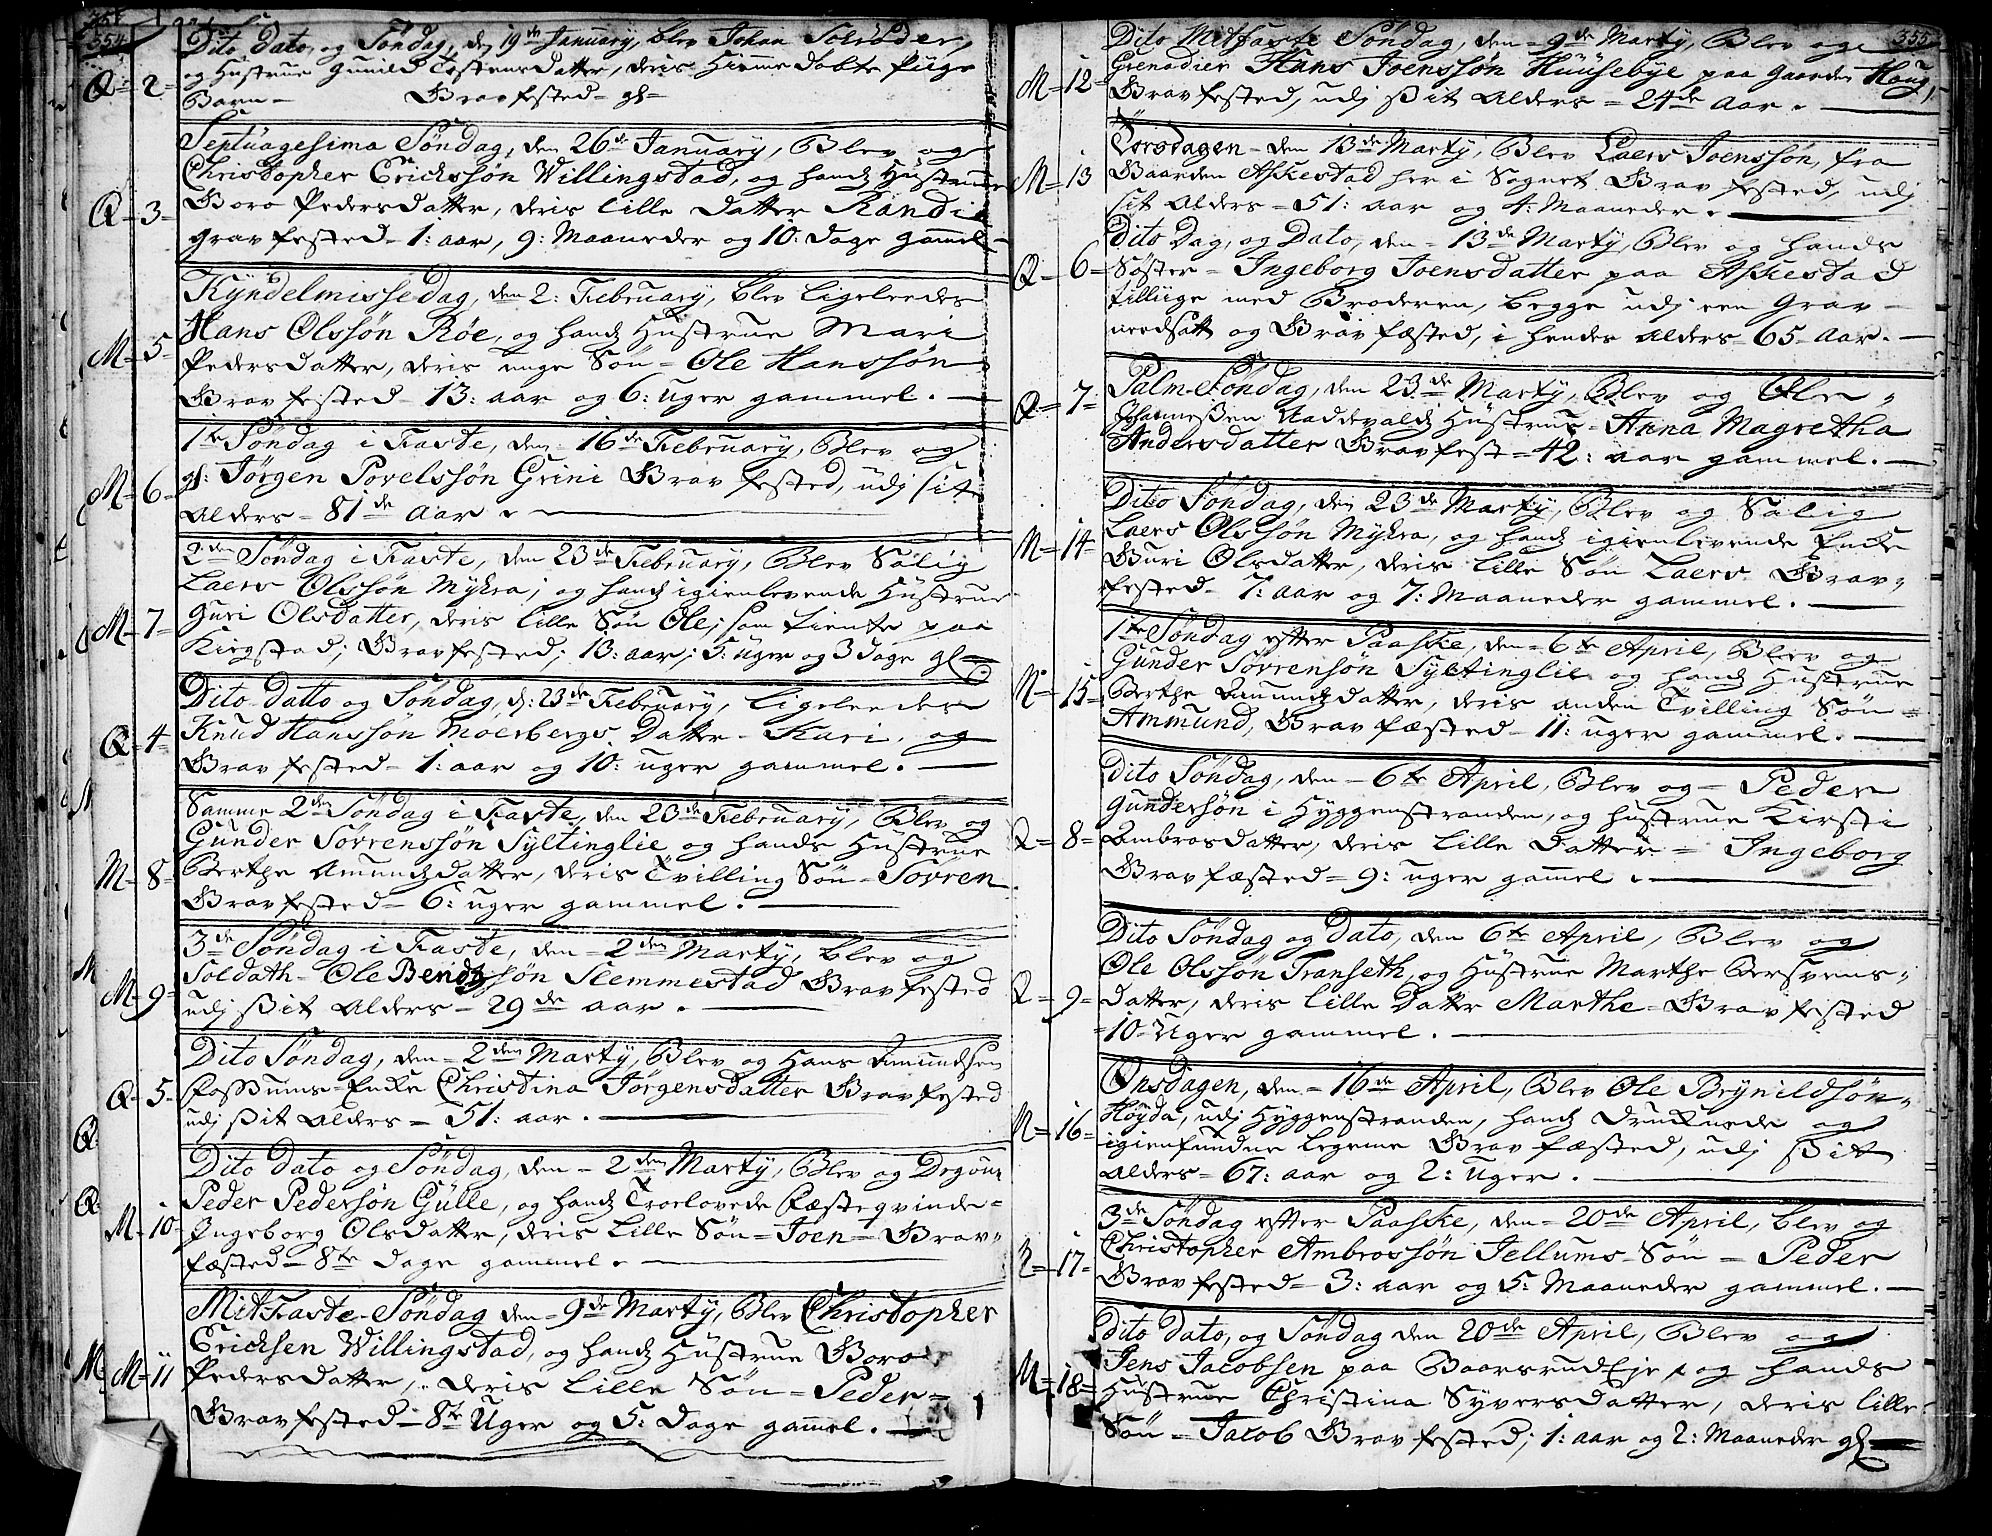 354
Q = 2 =
Dito Dato, og Søndag, dˢ 19de January, blev Johan
og Hustrue Gunild Tostensdatter, deris Hiemme døbte Piige
Barn = Gravfested = gl=
Q = 3 =
Septuagesima Søndag, den 26de January, Blev og
Christopher Erichssøn Willingstad, og hands Hustrue
Boro Pedersdatter, deris lille Datter Randi
gravfested = 1: aar, 9: Maaneder og 10: dage gammel =
M = 5 =
Kyndelmisse Dag, den 2: February, blev ligeleedes
Hans Olssøn Røe, og hands Hustrue Mari
Pedersdatter, deris unge Søn = Ole Hanssøn
Gravfested = 13: aar og 6: uger gammel. —
M = 6 =
1te Søndag i Faste, den 16de February, Blev og
gl: Jørgen Povelssøn Grini Gravfested, udj sit
Alders = 81de Aar. —
M = 7 =
2den Søndag i Faste, den 23de February, Blev Salig
Laers Olssøn Mykra, og hands igienlevende Hustrue
Guri Olsdatter, deris lille Søn Ole, som tiente paa
Kirgstad; Gravfested; 13: aar; 5: uger og 3 dage gl =
Q = 4 =
Dito Datto og Søndag, d: 23de February, ligeleedes
Knud Hanssøn Moerbergs Datter = Kari, og
Gravfested = 1: aar og 10: uger gammel. —
M = 8 =
Samme 2den Søndag i Faste, den 23de February, Blev og
Gunder Sørrenssøn Syltinglie og hands Hustrue
Berthe Amundsdatter, deris Tvilling Søn = Sørren
Gravfested = 6: uger gammel. —
M = 9 =
3de Søndag i Faste, den = 2den Marty, blev og
Soldath = Ole Bendtssøn Slemmestad Gravfested
udj sit Alders = 29de aar. —
Q = 5 =
Dito Søndag, den = 2den Marty, Blev og Hans Amundsen
Fossums = Enke Christina Jørgensdatter Gravfested
udj sit Alders = 51: aar. —
M = 10 =
Dito Dato og Søndag, den = 2den Marty, Blev og
Peder Pedersøn Gulle, og hands Troelovede Festeqvinde =
Ingeborg Olsdatter, deris lille Søn = Joen = Grav=
fæsted = 8te dage gammel. —
M = 11
Mit Faste = Søndag den = 9de Marty, Blev Christopher
Ericksen Willingstad, og hands Hustrue Boro
Pedersdatter, deris lille Søn = Peder =
Gravfested = 8te Uger og 5: dage gammel. —
355
M = 12 =
Dito Mitfaste Søndag, den = 9de Marty, Blev og
Grenadier Hans Joenssøn Huusebye paa gaarden Haug,
Gravfested, udj sit Alders = 24de Aar. —
M = 13
Torsdagen = den 13de Marty, Blev Laers Joenssøn, fra
Gaarden Askestad her i Sognet Gravfested, udj
sit Alders = 51: aar og 4: Maaneder. —
Q = 6 =
Dito Dag, og Dato, den = 13de Marty, Blev og hands
Søster = Ingeborg Joensdatter paa Askestad
tilliige med Broderen, begge udj een Grav =
needsatt og Gravfæsted, i hendes Alders 65 Aar. —
Q = 7 =
Palm = Søndag, den 23de Marty, Blev og Ole =
Uddevalds Hustrue = Anna Magretha
Andersdatter Gravfest = 42: aar gammel. —
M = 14 =
Dito Søndag, den 23de Marty, Blev og Salig
Laers Olssøn Mykra, og hands igienlevende Enke
Guri Olsdatter, deris lille Søn Laers Grav=
fested = 7: aar og 7: Maaneder gammel. —
M = 15 =
1te Søndag efter Paaske, den = 6te April, Blev og
Gunder Sørrensøn Syltinglie og hands Hustrue
Berthe Amundsdatter, deris anden Tvilling Søn =
Ammund, Gravfæsted = 11: uger gammel. —
Q = 8 =
Dito Søndag, den = 6te April, Blev og = Peder
Gundersøn i Hyggenstranden, og hustrue Kirsti
Ambrosdatter, deris lille Datter = Ingeborg
Gravfæsted = 9: uger gammel. —
Q = 9 =
Dito Søndag og Dato, den 6te April, Blev og
Ole Olssøn Transeth, og Hustrue Marthe Bersvens=
datter, deris lille Datter Marthe = Gravfested
=10= Uger gammel. —
M = 16 =
Onsdagen, den = 16de April, Blev Ole Brynildsøn =
Høyda, udj Hyggenstranden, hands Druknede og
igienfundne legeme Gravfæsted, udj sit
Alders = 67: aar og 2: Uger. —
M = 17 =
3de Søndag efter Paaske, den = 20de April, blev og
Christopher Ambrossøn Jellums Søn = Peder
Gravfested = 3: aar og 5: Maaneder gammel. —
M = 18 =
Dito Dato, og Søndag den 20de April, Blev og
Jens Jacobsen paa Baarsrud Eje, og hands
Hustrue Christina Syversdatter, deris lille
Søn = Jacob Gravfested; 1: aar og 2: Maaneder gl